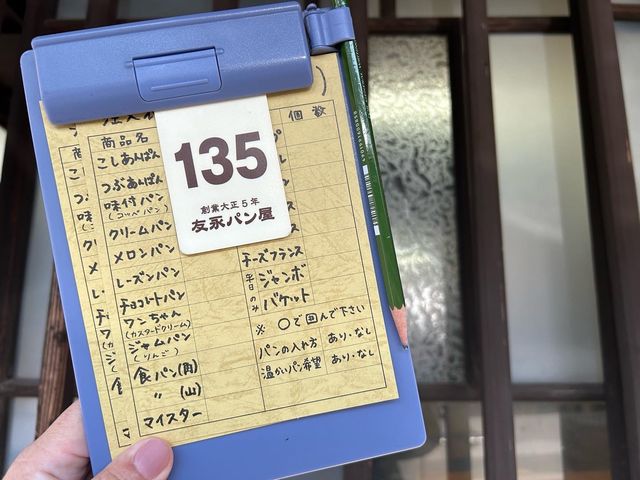 135
創業大正5年
友永パン屋
商品名
個数
こしあんぱん
つぶあんぱん
味付パン
(コッペパン)
クリームパン
メロンパン
レーズンパン
チョコレートパン
ワンちゃん
(カスタードクリーム)
ジャムパン
(りんご)
食パン(角)
〃 (山)
マイスター
チーズフランス
平日のみ
ジャンボ
バケット
※ ○で囲んで下さい
パンの入れ方 あり・なし
温かいパン希望 あり・なし